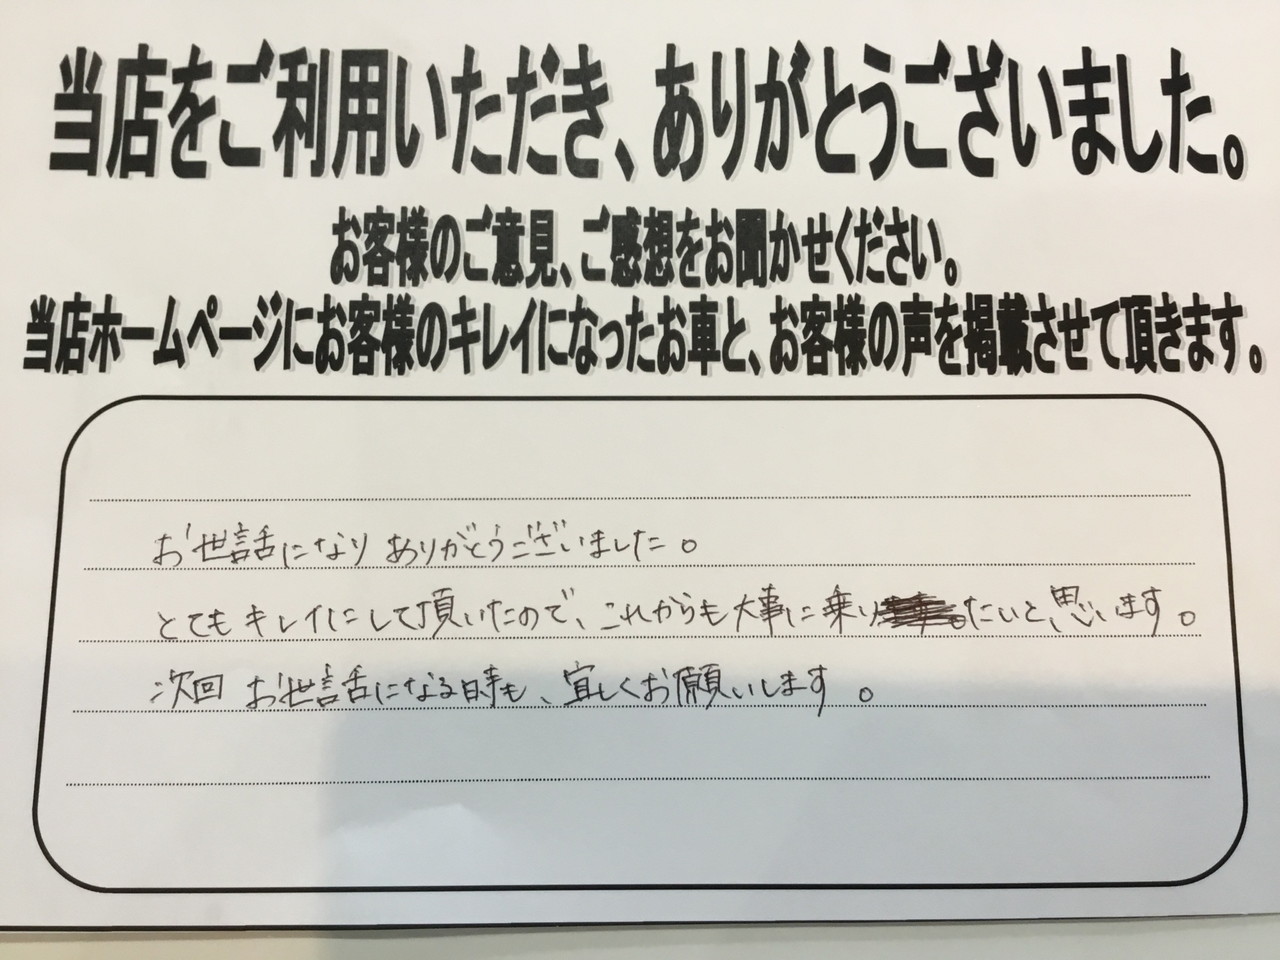 当店をご利用いただき、ありがとうございました。
お客様のご意見、ご感想をお聞かせください。
当店ホームページにお客様のキレイになったお車と、お客様の声を掲載させて頂きます。
お世話になり ありがとうございました。
とてもキレイにして頂いたので、これからも大事に乗りたいと思います。
次回 お世話になる時も、宜しくお願いします。